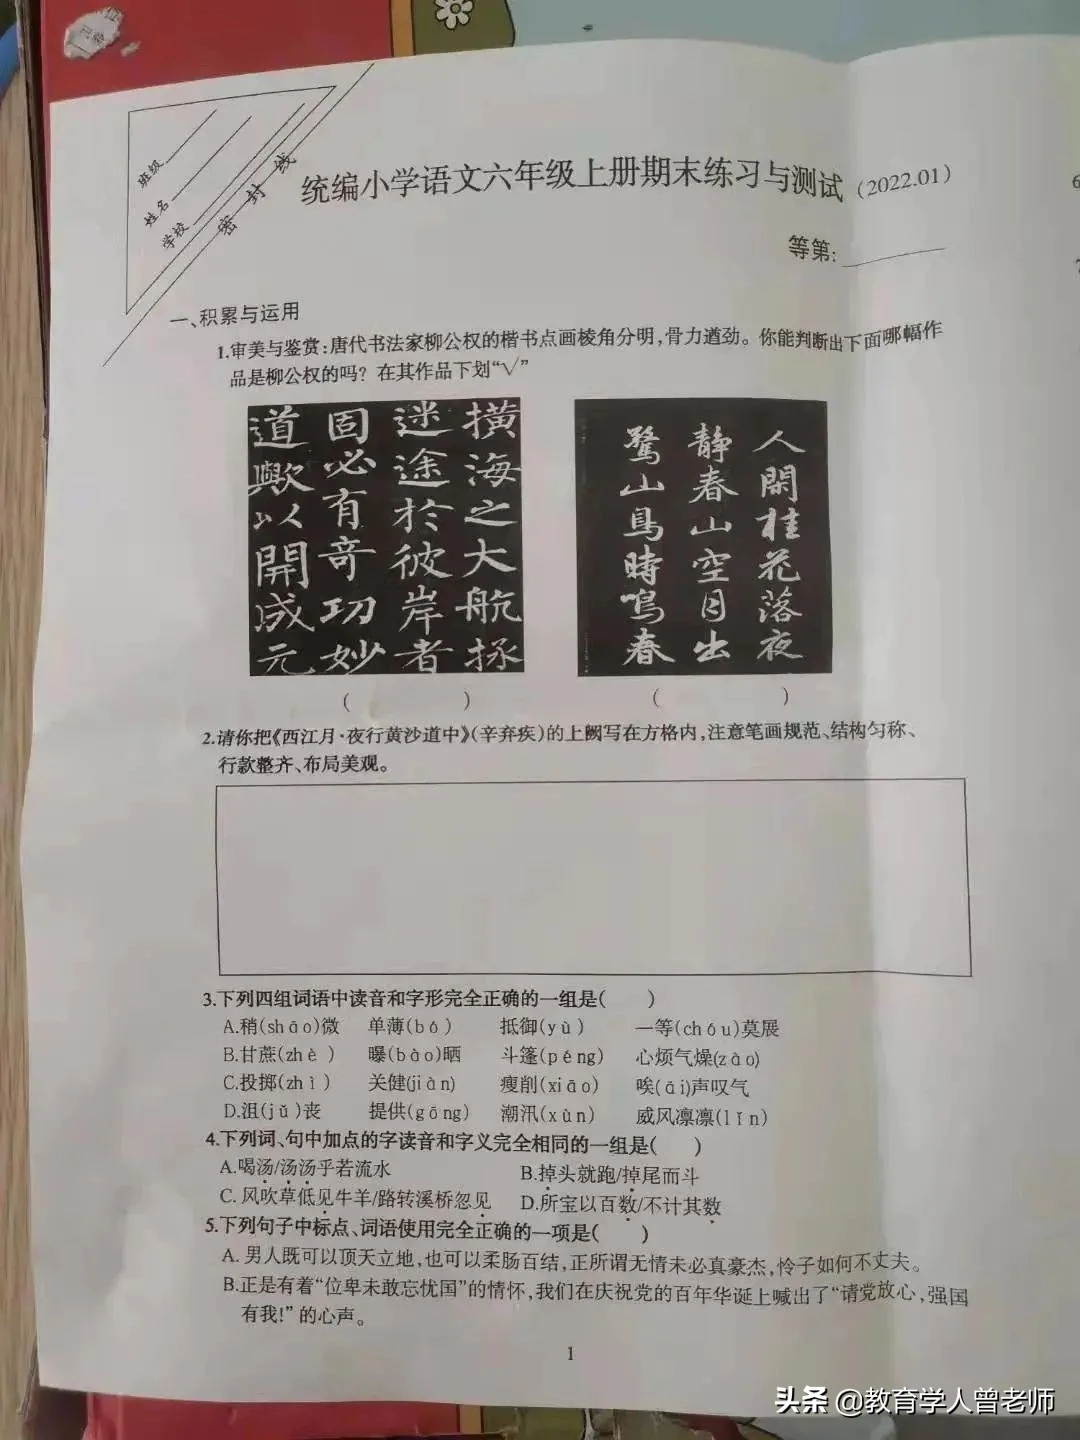 班级
姓名
学校
密封线
统编小学语文六年级上册期末练习与测试(2022.01)
等第:
一、积累与运用
1.审美与鉴赏:唐代书法家柳公权的楷书点画棱角分明,骨力遒劲。你能判断出下面哪幅作
品是柳公权的吗？在其作品下划“√”
横海之大航拯
迷途於彼岸者
固必有奇功妙
道歟以開成元
人閑桂花落夜
静春山空月出
驚山鳥時鳴春
( )
( )
2.请你把《西江月·夜行黄沙道中》(辛弃疾)的上阙写在方格内,注意笔画规范、结构匀称、
行款整齐、布局美观。
3.下列四组词语中读音和字形完全正确的一组是( )
A.稍(shāo)微 单薄(bó) 抵御(yù) 一等(chóu)莫展
B.甘蔗(zhè) 曝(bào)晒 斗篷(péng) 心烦气燥(zào)
C.投掷(zhì) 关健(jiàn) 瘦削(xiāo) 唉(āi)声叹气
D.沮(jǔ)丧 提供(gōng) 潮汛(xùn) 威风凛凛(lǐn)
4.下列词、句中加点的字读音和字义完全相同的一组是( )
A.喝汤/汤汤乎若流水 B.掉头就跑/掉尾而斗
C.风吹草低见牛羊/路转溪桥忽见 D.所宝以百数/不计其数
5.下列句子中标点、词语使用完全正确的一项是( )
A.男人既可以顶天立地,也可以柔肠百结,正所谓无情未必真豪杰,怜子如何不丈夫。
B.正是有着“位卑未敢忘忧国”的情怀,我们在庆祝党的百年华诞上喊出了“请党放心,强国
有我!”的心声。
1
头条 @教育学人曾老师